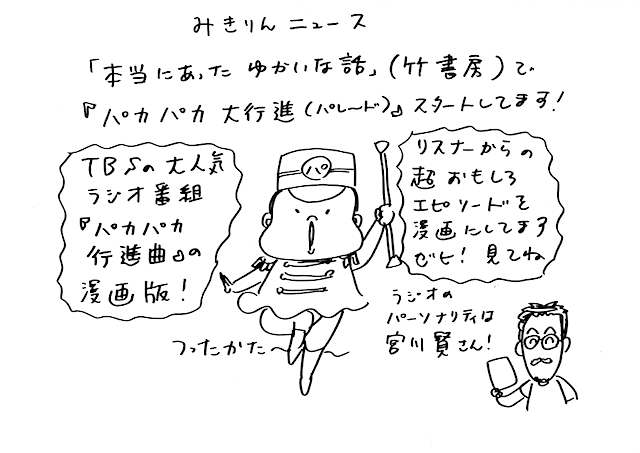 みきりんニュース
「本当にあったゆかいな話」(竹書房)で
『パカパカ大行進(パレード)』スタートしてます!
TBSの大人気
ラジオ番組
『パカパカ
行進曲』の
漫画版!
パ
リスナーからの
超おもしろ
エピソードを
漫画にしてます
ぜヒ!見てね
つったかた〜
ラジオの
パーソナリティは
宮川賢さん!